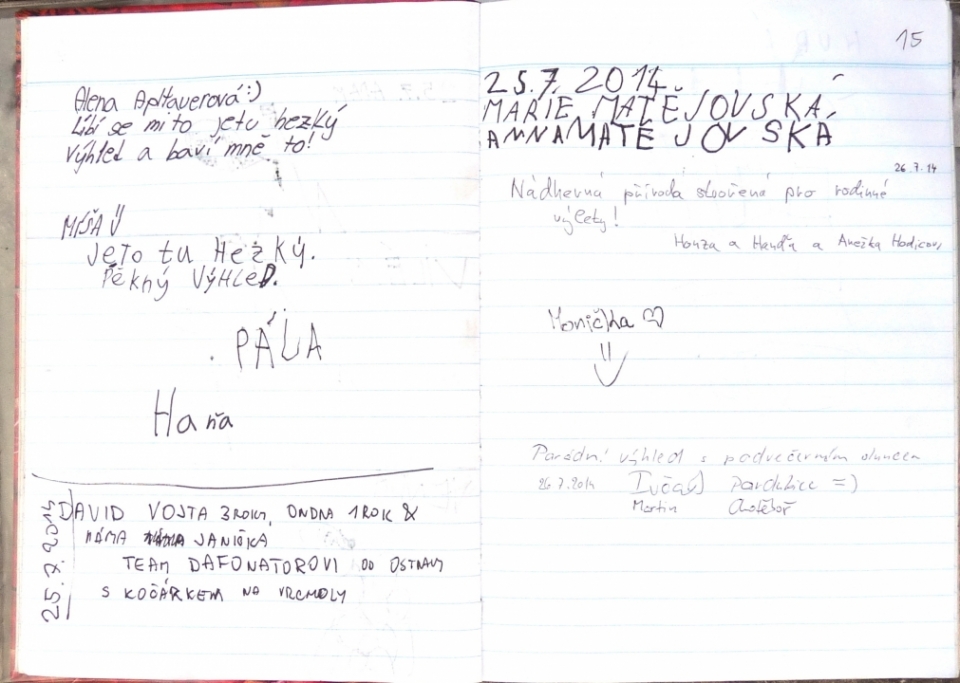 Alena Apltauerová :)
Líbí se mi to jetu hezký
výhled a baví mně to!
MÍŠA
JeTo tu Hezký.
Pěkný VýHLeD.
PÁJA
Haňa
25.7.2014
DAVID VOJTA 3 ROKY, ONDRA 1 ROK &
MÁMA JANIČKA
TEAM DAFONATOROVI OD OSTRAVY
S KOČÁRKEM NA VRCHOLY
15
25.7. 2014.
MARIE MATĚJOVSKÁ
ANNA MATĚJOVSKÁ
26.7.14
Nádherná příroda stvořená pro rodinné
výlety!
Honza a Handa a Anežka Hodicovi
Monička ♡
Parádní výhled s podvečerním sluncem
26.7.2014 Pardubice =)
Martin Chotěboř